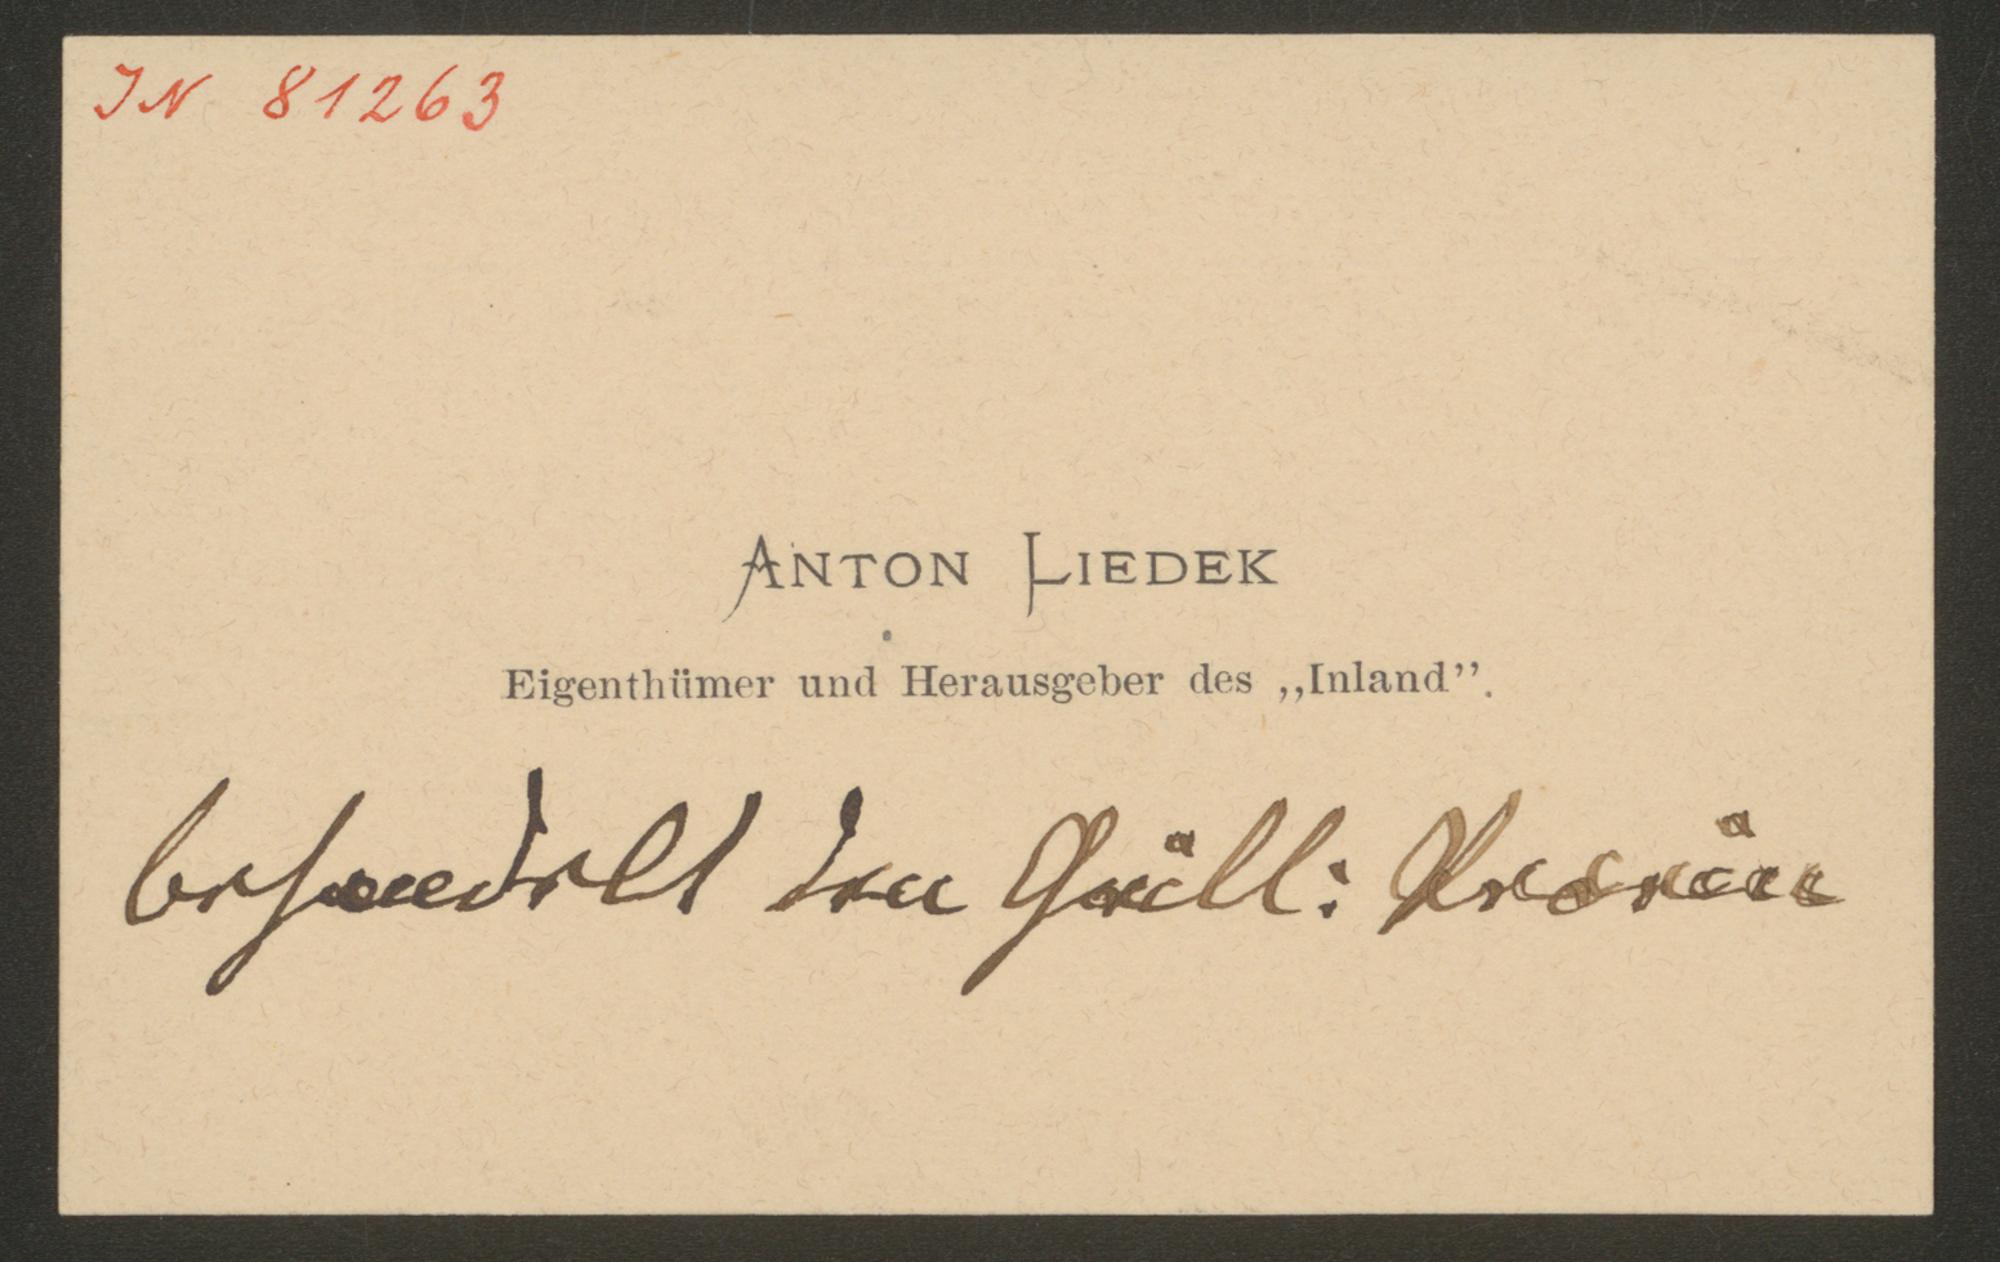 IN 81263
ANTON LIEDEK
Eigenthümer und Herausgeber des „Inland”.
behandelt den Grill: Verein